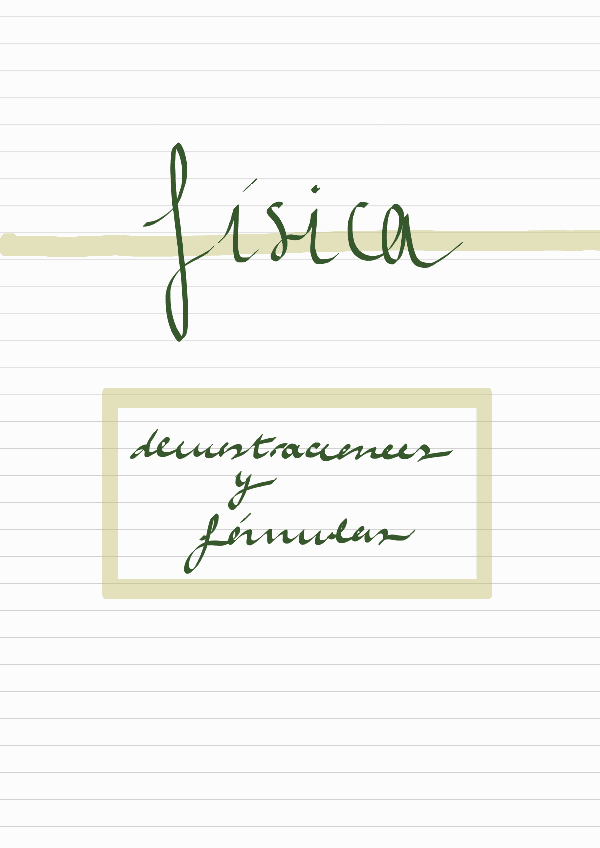 física
demostraciones
y
fórmulas